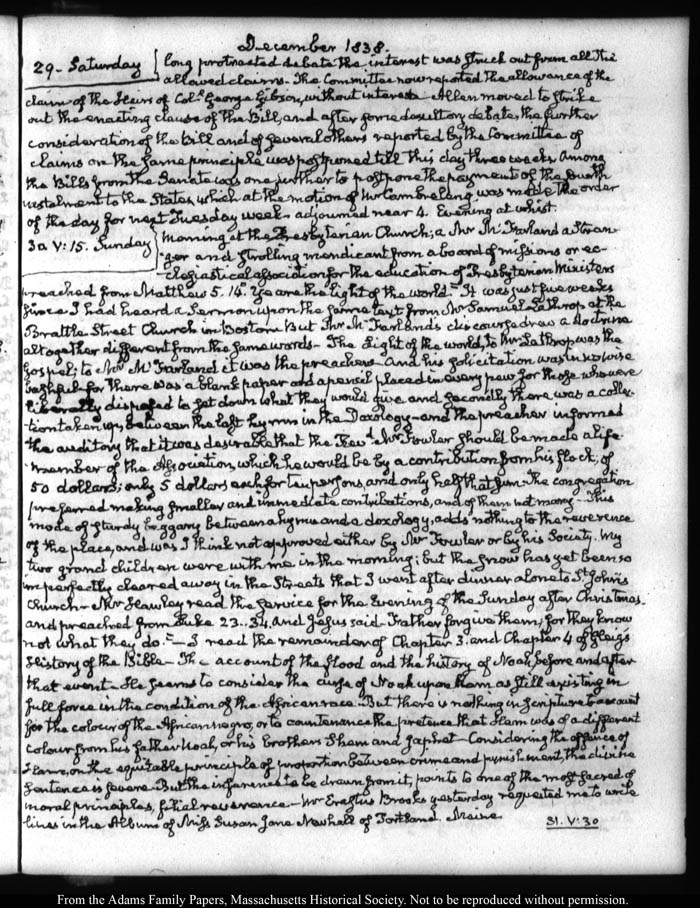 December 1838.
29 - Saturday
long protracted debate the interest was struck out from all the
allowed claims - The Committee now reported the allowance of the
claim of the Heirs of Col.l George Gibson, without interest - Allen moved to strike
out the enacting clause of the Bill, and after some desultory debate, the further
consideration of the bill and of several others reported by the Committee of
claims on the same principle was postponed till this day three weeks. Among
the Bills from the Senate was one further to postpone the payment of the fourth
instalment to the States, which at the motion of Mr Cambreleng was made the order
of the day for next Tuesday week - adjourned near 4. Evening at whist.
30 V: 15. Sunday
Morning at the Presbyterian Church; a Mr McFarland a stran-
ger and strolling mendicant from a board of missions or ec-
clesiastical association for the education of Presbyterian Ministers
preached from Matthew 5. 14. "Ye are the light of the world." It was just five weeks
since I had heard a sermon upon the same text from Mr Samuel Lathrop at the
Brattle Street Church in Boston But Mr McFarland's discourse drew a doctrine
altogether different from the same words - The Light of the world, to Mr Lathrop was the
Gospel; to Mr McFarland it was the preacher - And his solicitation was in no wise
bashful for there was a blank paper and a pencil placed in every pew for those who were
liberally disposed to set down what they would give and secondly there was a collec-
tion taken up, between the last hymn in the Doxology - and the preacher informed
the auditory that it was desirable that the Revd Mr Fowler should be made a life
member of the Association, which he would be by a contribution from his flock, of
50 dollars; only 5 dollars each for ten persons, and only half that sum - The congregation
preferred making smaller and immediate contributions, and of them not many - This
mode of sturdy beggary between a hymn and a doxology, adds nothing to the reverence
of the place, and was I think not approved either by Mr Fowler or by his Society. My
two grand children were with me in the morning; but the snow has yet been so
imperfectly cleared away in the Streets that I went after dinner alone to St. John's
Church - Mr Hawley read the service for the Evening of the Sunday after Christmas.
and preached from Luke 23. 34. And Jesus said - Father forgive them; for they know
not what they do." - I read the remainder of Chapter 3. and Chapter 4 of Gleig's
History of the Bible - The account of the flood and the history of Noah before and after
that event - He seems to consider the curse of Noah upon Ham as still existing in
full force in the condition of the African race - But there is nothing in Scripture to account
for the colour of the African negro, or to countenance the pretence that Ham was of a different
colour from his father Noah, or his brothers Shem and Japhet - Considering the offence of
Ham, on the equitable principle of proportion between crime and punishment, the divine
sentence is severe - But the inference to be drawn from it, points to one of the most sacred of
moral principles, filial reverence - Mr Erastus Brooks yesterday requested me to write
lines in the Album of Miss Susan Jane Newhall of Portland. Maine
31. V: 30
From the Adams Family Papers, Massachusetts Historical Society. Not to be reproduced without permission.